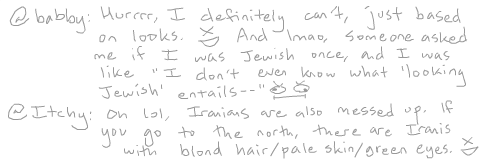 @babby: Hurrrr, I definitely can't, just based
on looks. And lmao, someone asked
me if I was Jewish once, and I was
like "I don't even know what 'looking
Jewish' entails--"
@Itchy: Oh lol, Iranians are also messed up. If
you go to the north, there are Iranis
with blond hair/pale skin/green eyes.